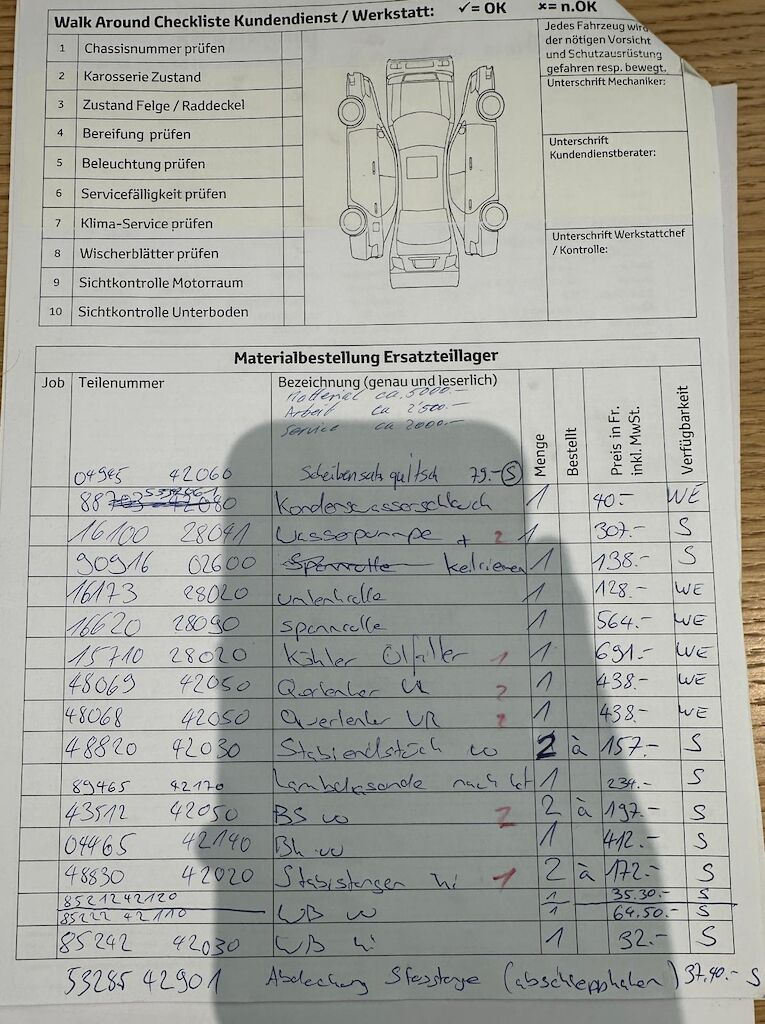 Walk Around Checkliste Kundendienst / Werkstatt: ✓= OK ×= n.OK
1 Chassisnummer prüfen
2 Karosserie Zustand
3 Zustand Felge / Raddeckel
4 Bereifung prüfen
5 Beleuchtung prüfen
6 Servicefälligkeit prüfen
7 Klima-Service prüfen
8 Wischerblätter prüfen
9 Sichtkontrolle Motorraum
10 Sichtkontrolle Unterboden
Jedes Fahrzeug wird
der nötigen Vorsicht
und Schutzausrüstung
gefahren resp. bewegt.
Unterschrift Mechaniker:
Unterschrift
Kundendienstberater:
Unterschrift Werkstattchef
/ Kontrolle:
Materialbestellung Ersatzteillager
Job Teilenummer Bezeichnung (genau und leserlich) Menge Bestellt Preis in Fr. inkl. MwSt. Verfügbarkeit
Material ca. 5000.-
Arbeit ca 2'500.-
Service ca 2000.-
04945 42060 Scheibensatz quitsch 79.- S
88 Kondenswasserschlauch 1 40.- WE
16100 28041 Wasserpumpe + 2 1 307.- S
90916 02600 Spannrolle Keilriemen 1 138.- S
16173 28020 umlenkrolle 1 128.- WE
16620 28090 spannrolle 1 564.- WE
15710 28020 Kühler Ölfilter 1 1 691.- WE
48069 42050 Querlenker VL 2 1 438.- WE
48068 42050 Querlenker VR 2 1 438.- WE
48820 42030 Stabiendstück vo 2 à 157.- S
89465 42170 Lambdasonde nach Kat 1 234.- S
43512 42050 BS vo 2 2 à 197.- S
04465 42140 Bk vo 1 412.- S
48830 42020 Stabistangen hi 1 2 à 172.- S
85212 42120 1 35.30.- S
85222 42110 WB vo 1 64.50.- S
85242 42030 WB hi 1 32.- S
53285 42901 Abdeckung Stosstange (abschlepphaken) 37.40.- S